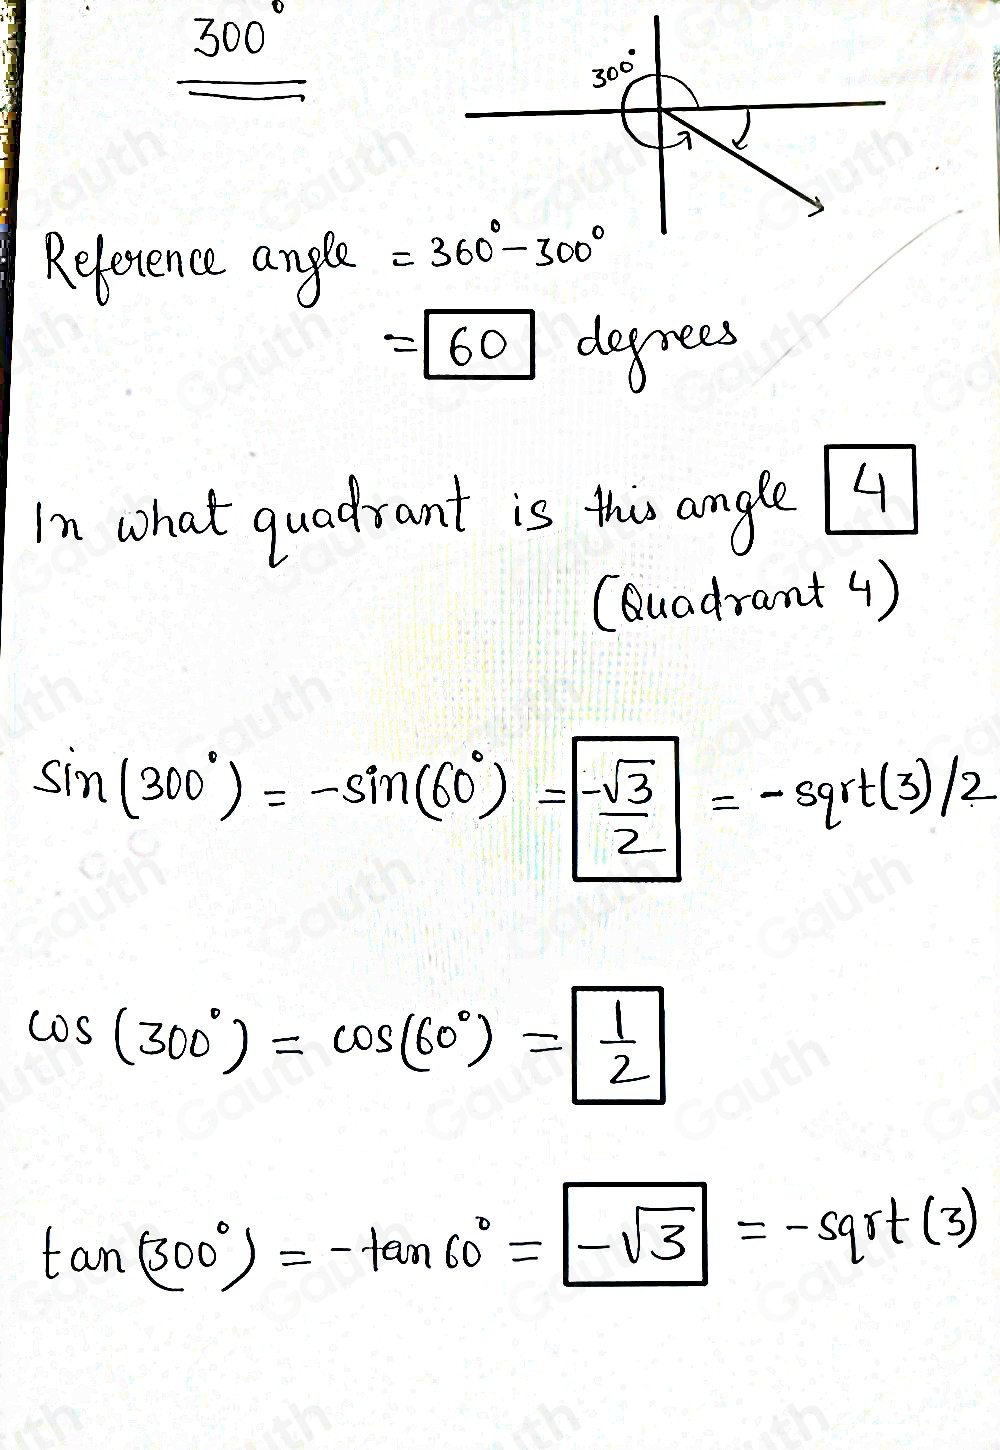 300°
300°
Reference angle = 360° - 300°
= 60 degrees
In what quadrant is this angle 4
(Quadrant 4)
sin(300°) = -sin(60°) = -√3/2 = -sqrt(3)/2
cos(300°) = cos(60°) = 1/2
tan(300°) = -tan60° = -√3 = -sqrt(3)
Gauth